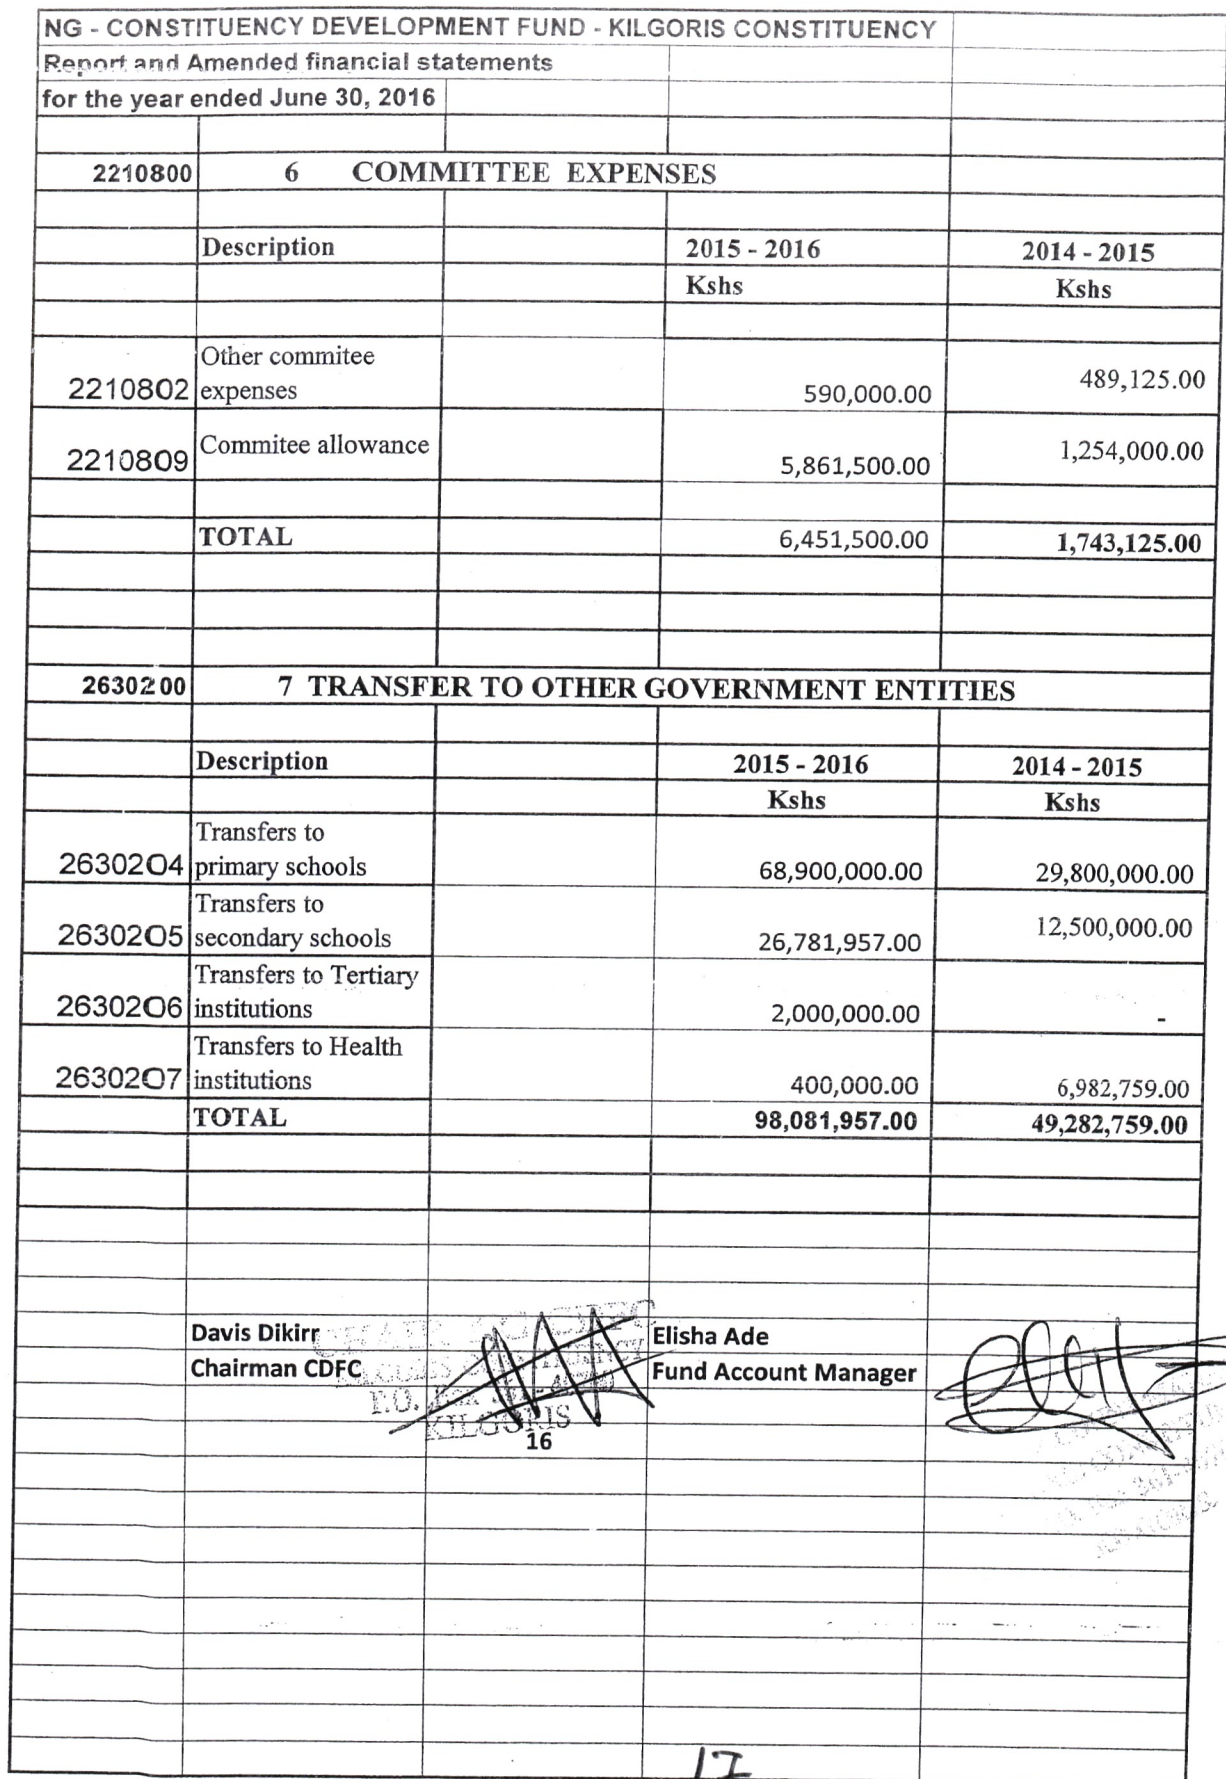 NG - CONSTITUENCY DEVELOPMENT FUND - KILGORIS CONSTITUENCY
Report and Amended financial statements
for the year ended June 30, 2016
2210800 6 COMMITTEE EXPENSES
Description 2015 - 2016 2014 - 2015
Kshs Kshs
Other commitee
2210802 expenses 590,000.00 489,125.00
2210809 Commitee allowance 5,861,500.00 1,254,000.00
TOTAL 6,451,500.00 1,743,125.00
2630200 7 TRANSFER TO OTHER GOVERNMENT ENTITIES
Description 2015 - 2016 2014 - 2015
Kshs Kshs
Transfers to
2630204 primary schools 68,900,000.00 29,800,000.00
Transfers to
2630205 secondary schools 26,781,957.00 12,500,000.00
Transfers to Tertiary
2630206 institutions 2,000,000.00 -
Transfers to Health
2630207 institutions 400,000.00 6,982,759.00
TOTAL 98,081,957.00 49,282,759.00
Davis Dikirr Elisha Ade
Chairman CDFC Fund Account Manager
P.O.
KILGORIS
16
17